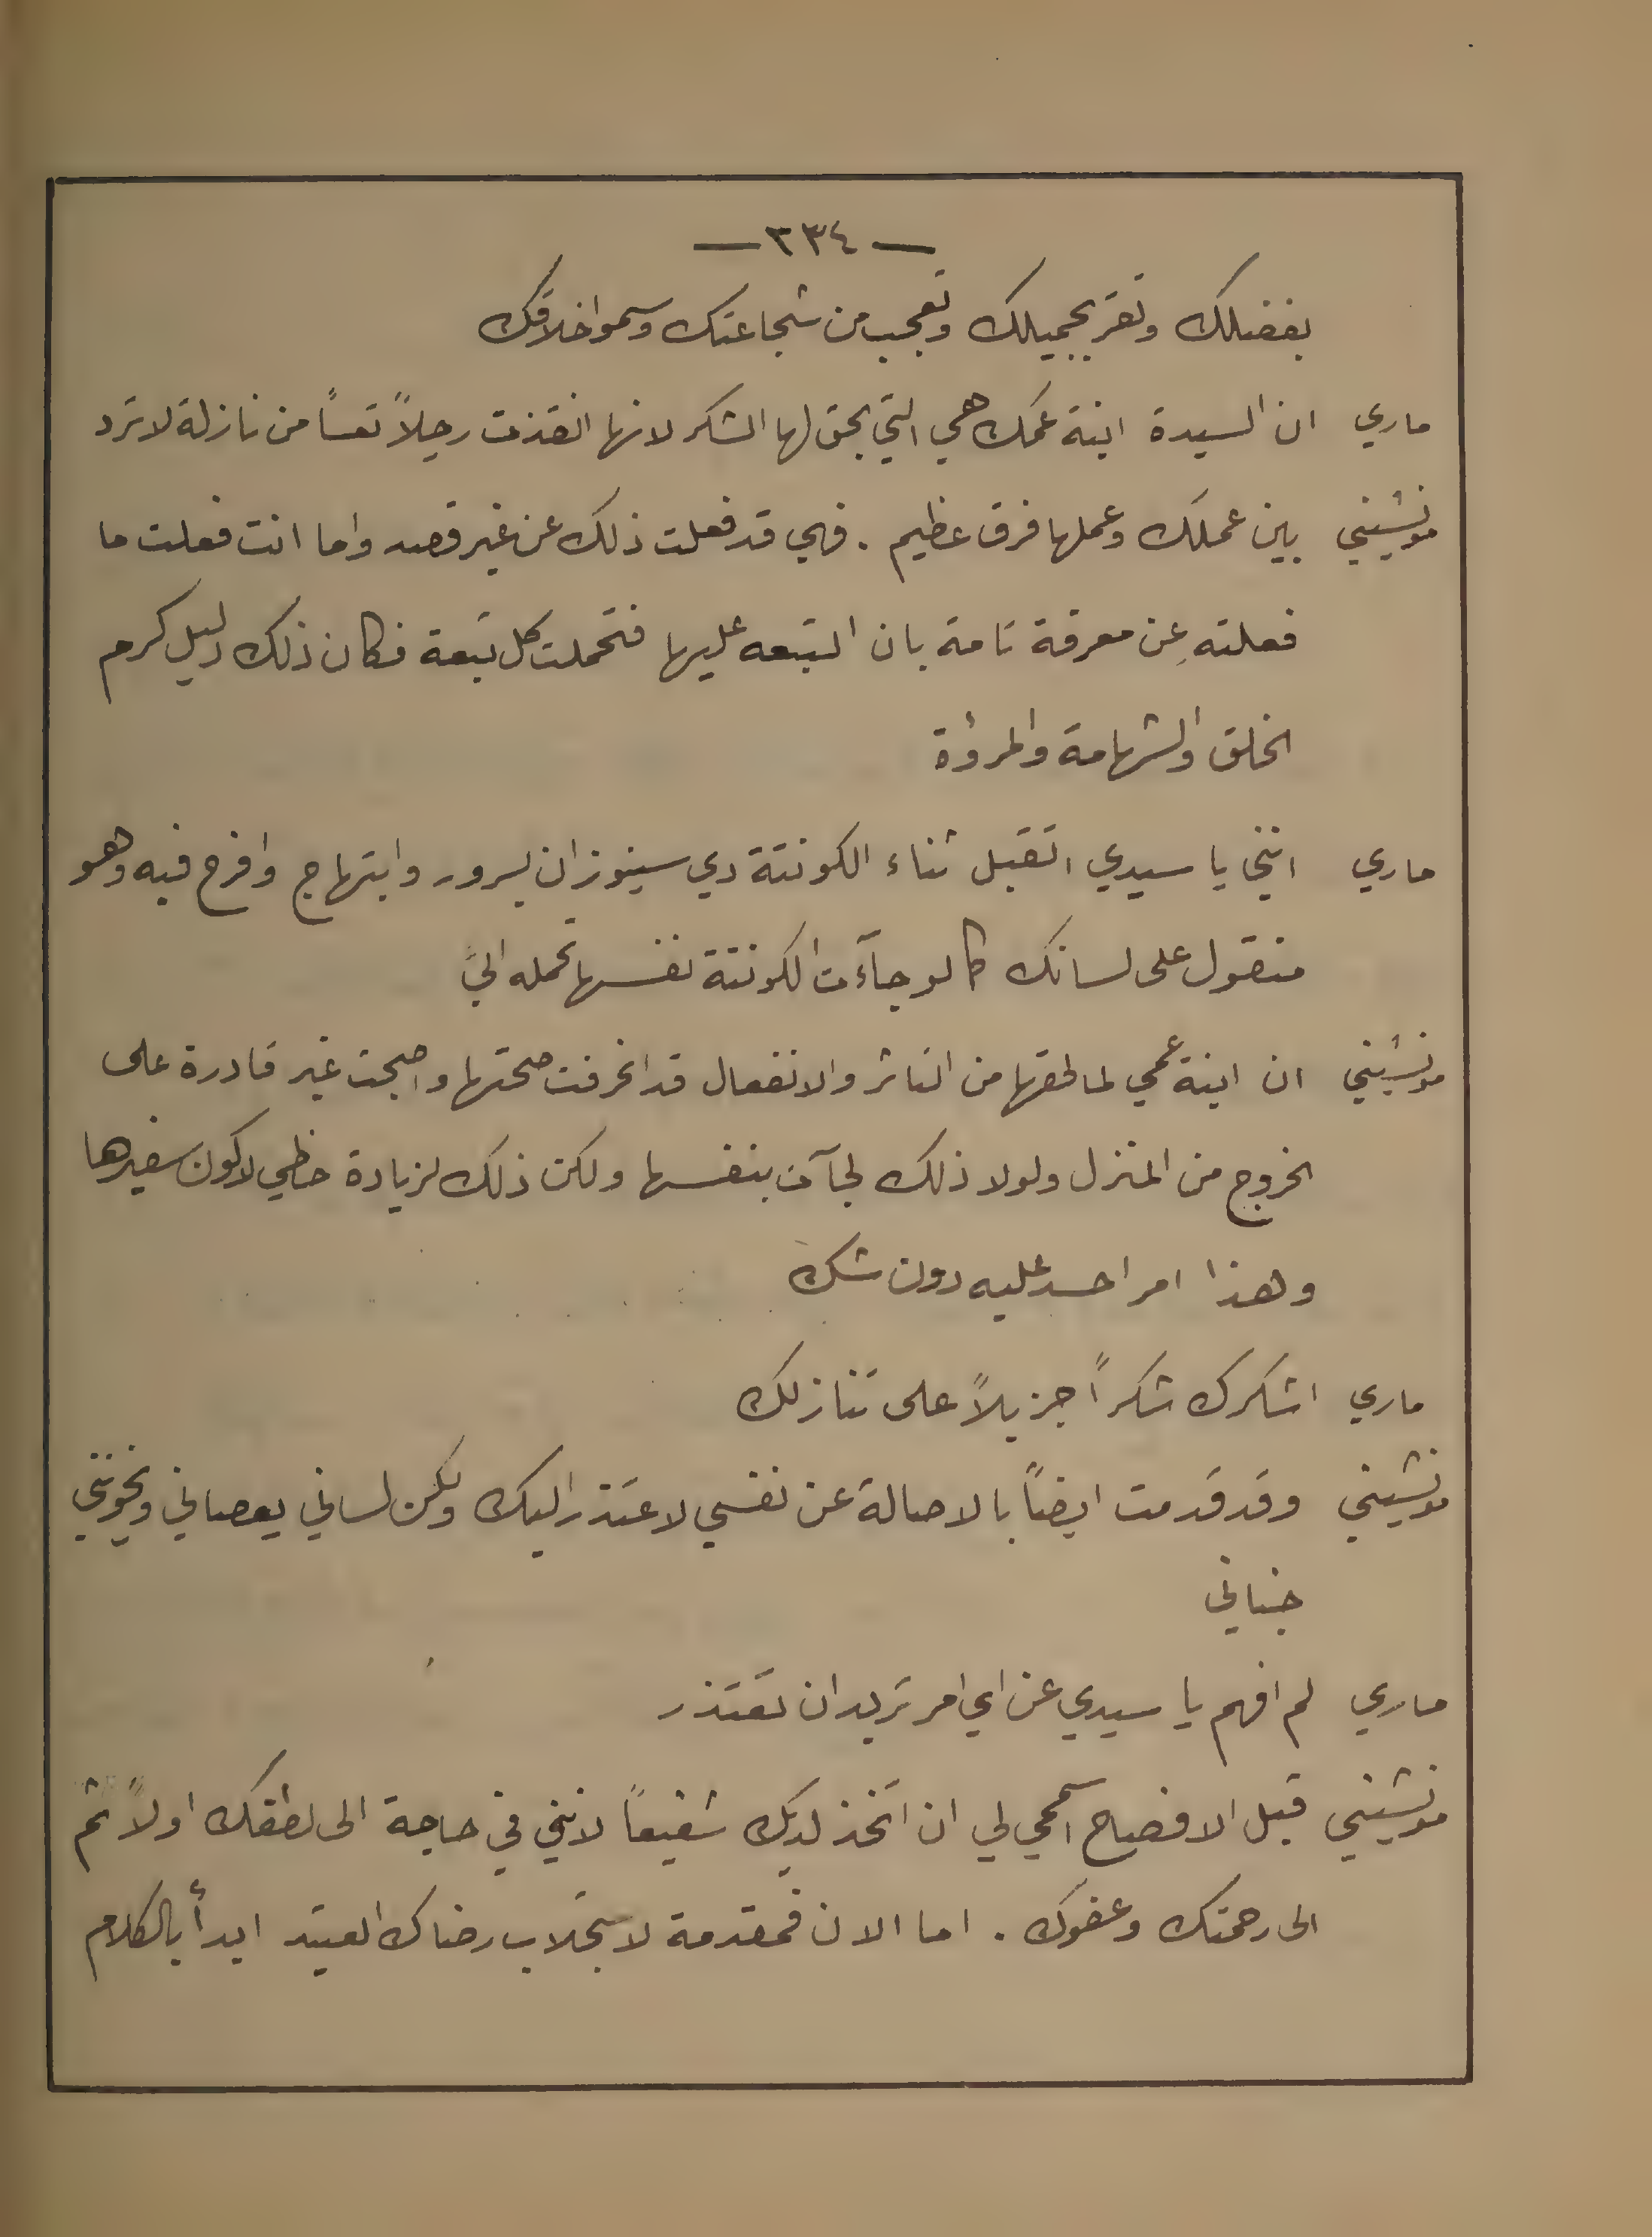 — ٣٣٤ —
بفضلك وتقر بجميلك وتعجب من شجاعتك وسمو اخلاقك
ماري ان السيدة ابنة عمك هي التي يحق لها الشكر لانها انقذت رجلاً تعساً من نازلة لا ترد
مونشيني بين عملك وعملها فرق عظيم . فهي قد فعلت ذلك عن غير قصد واما انت فعلت ما
فعلتهِ عن معرفة تامة بان التبعه عليها فتحملت كل تبعة فكان ذلك دليل كرم
الخلق والشهامة والمرؤة
ماري انني يا سيدي اتقبل ثناء الكونتة دي سينوزان بسرور وابتهاج وافرح فيه وهو
منقول على لسانك كما لو جآءت الكونتة نفسها تحمله اليَّ
مونشيني ان ابنة عمي لما لحقها من التاثر والانفعال قد انحرفت صحتها واصبحت غير قادرة على
الخروج من المنزل ولولا ذلك لجآت بنفسها ولكن ذلك لزيادة حظي لاكون سفيرها
وهذا امر احسد عليه دون شك
ماري اشكرك شكراً جزيلاً على تنازلك
مونشيني وقد قدمت ايضاً بالاصالة عن نفسي لاعتذر اليك ولكن لساني يعصاني ويخونني
جناني
ماري لم افهم يا سيدي عن اي امر تريد ان تعتذر
مونشيني قبل الافصاح اسمحي لي ان اتخذ لديك شفيعاً لانني في حاجة الى لطفك اولاً ثم
الى رحمتك وعفوك . اما الان فمقدمة لاستجلاب رضاك العتيد ابدأ بالكلام